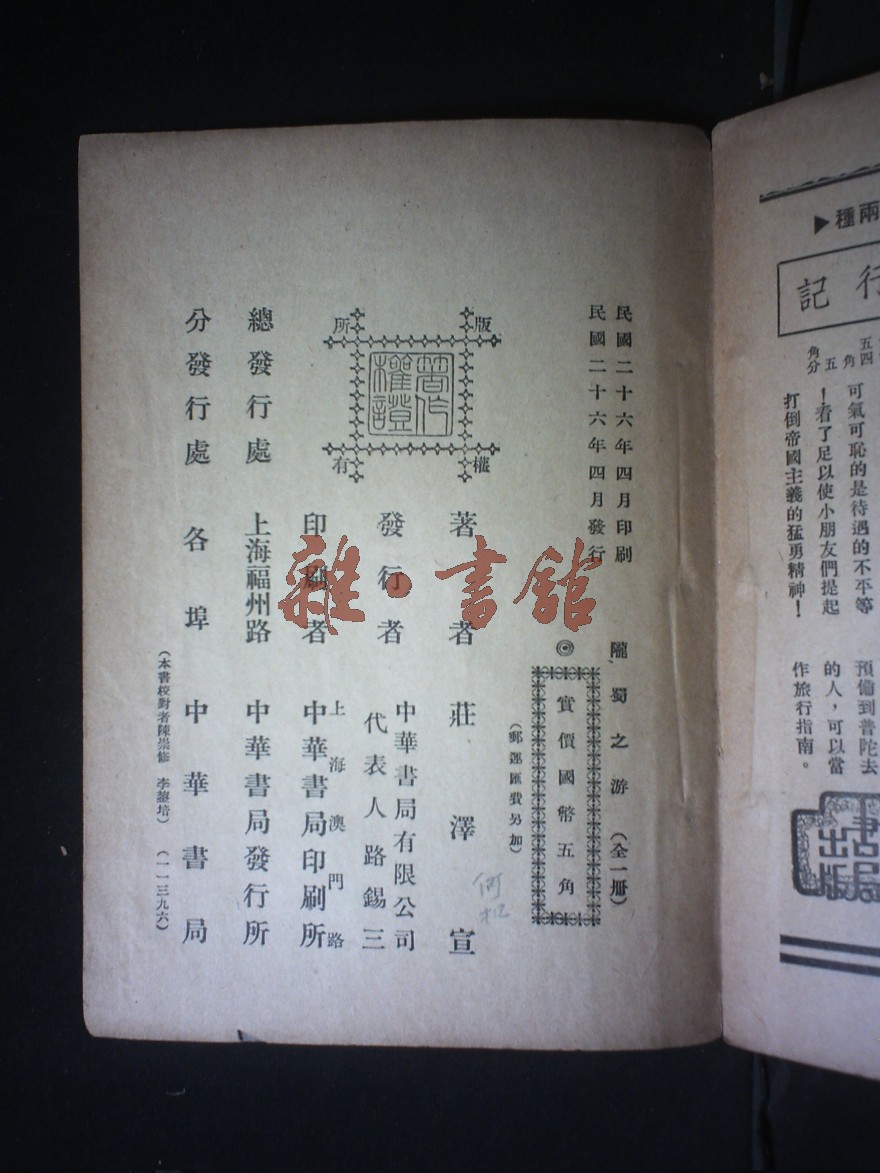 民國二十六年四月印刷
民國二十六年四月發行
隴蜀之游（全一冊）
◎實價國幣五角
（郵運匯費另加）
版權所有
著作權證
著者 莊澤宣
發行者 中華書局有限公司
代表人路錫三
印刷者 上海澳門路
中華書局印刷所
總發行處 上海福州路 中華書局發行所
分發行處 各埠中華書局
（本書校對者陳崇修 李 培）（一一三九六）
雜·書館
種兩
行記
五四
角
五
角分
可氣可恥的是待遇的不平等
！看了足以使小朋友們提起
打倒帝國主義的猛勇精神！
預備到普陀去
的人，可以當
作旅行指南。
書局
出版